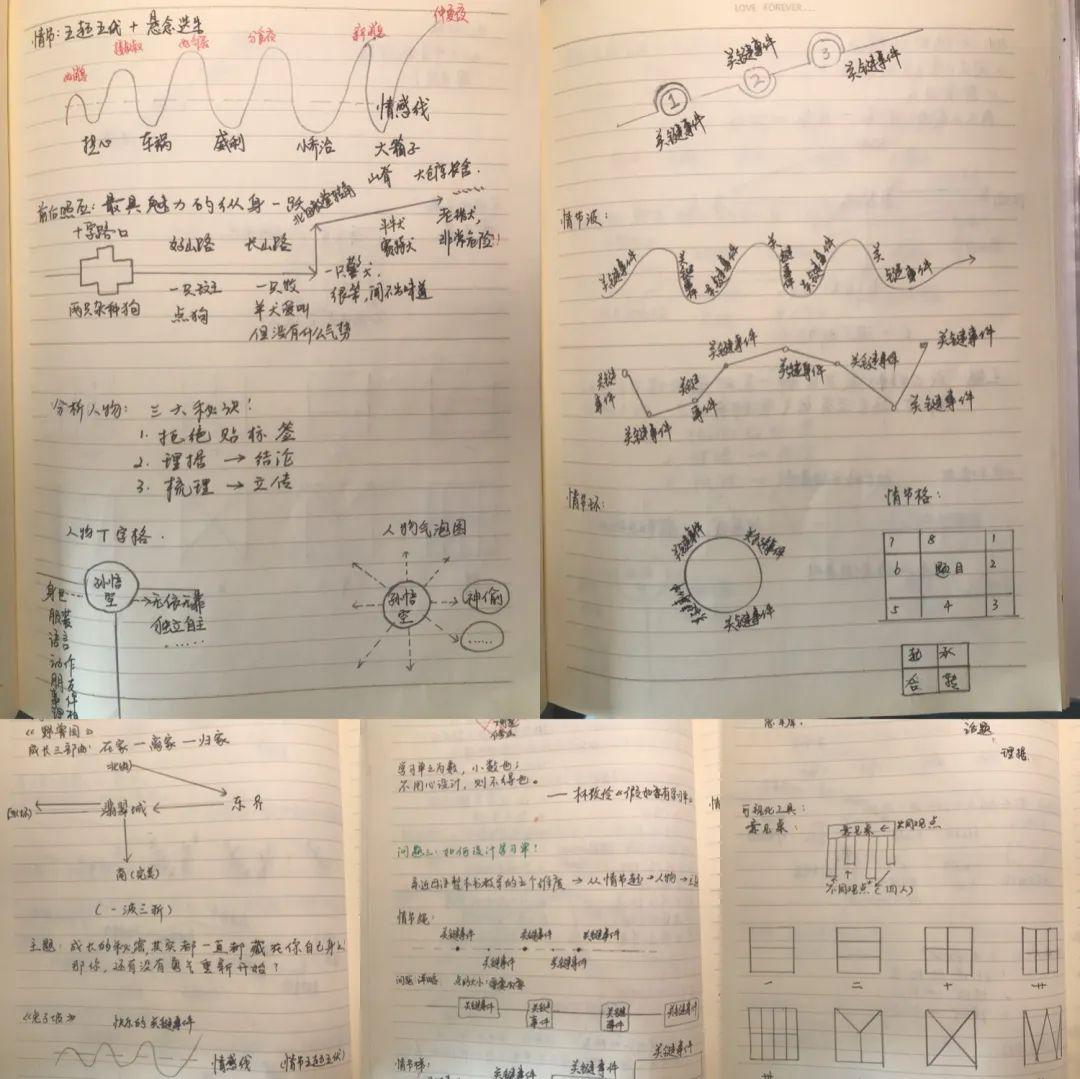 LOVE FOREVER...
情节:五起五代 + 悬念迭生
分首夜
仲夏夜
担心
车祸
威利
小乔治
大箱子
情感线
山脊
大仓库农舍.
前后照应:最具魅力的纵身一跃
十字路口
好山路
长山路
牛犬
赛猎犬
无措犬,
非常危险!
两只杂种狗
一只斑点狗
一只牧羊犬爱叫
但没有什么气势
一只警犬.
很笨,闻不出味道
分析人物: 三大秘诀!
1. 拒绝贴标签
2. 理据 → 结论
3. 梳理 → 立传
人物丁字格.
孙悟空
身世
服装
语言
动作
朋友
事件
无依无靠
独立自主
......
人物气泡图
孙悟空
神偷
......
关键事件
关键事件
关键事件
1
2
3
情节波:
关键事件
关键事件
关键事件
关键事件
关键事件
关键事件
关键事件
关键事件
关键事件
关键事件
关键事件
关键事件
关键事件
关键事件
情节环:
关键事件
关键事件
关键事件
关键事件
情节格:
7 8 1
6 题目 2
5 4 3
起 承
合 转
《野兽国》
成长三部曲: 在家一离家一归家
翡翠城
东界
南(完美)
(一波三折)
主题: 成长的秘密,其实都一直都藏在你自己身上
那你,还有没有勇气重新开始?
《兔子坡》 快乐的关键事件
情感线
学习单之为数,小数也;
不用心设计,则不得也。
问题三:如何设计学习单?
从情节起→人物→主
情节绳:
关键事件 关键事件 关键事件
关键事件 关键事件
问题:详略 点的大小:重要次要
关键事件 关键事件 关键事件 关键事件
情节梯:
关键事件 关键事件 关键事件
话题
理据
可视化工具:
意见桌:
意见桌 ← 共同观点
不同观点 (四人)
一 二 十 廿
卅